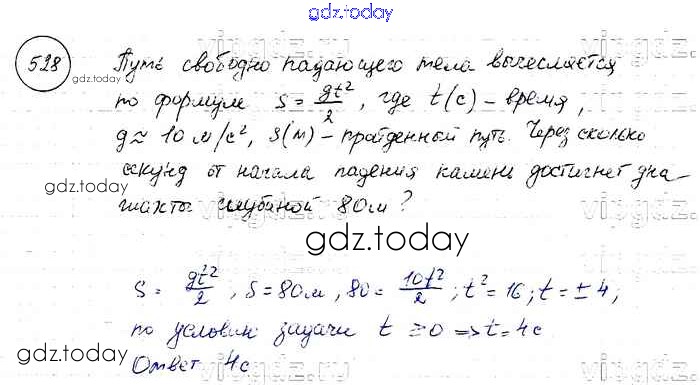 gdz.today
528
Путь свободно падающего тела вычесляется
gdz.today
по формуле s = gt²/2, где t(с) – время,
g ≈ 10 м/с², s(м) – пройденный путь. Через сколько
секунд от начала падения камень достигнет дна
gdz.today
шахты глубиной 80м?
gdz.today
s = gt²/2, s = 80м, 80 = 10t²/2; t² = 16; t = ± 4;
по условию задачи t ≥ 0 => t = 4с
gdz.today
Ответ 4с